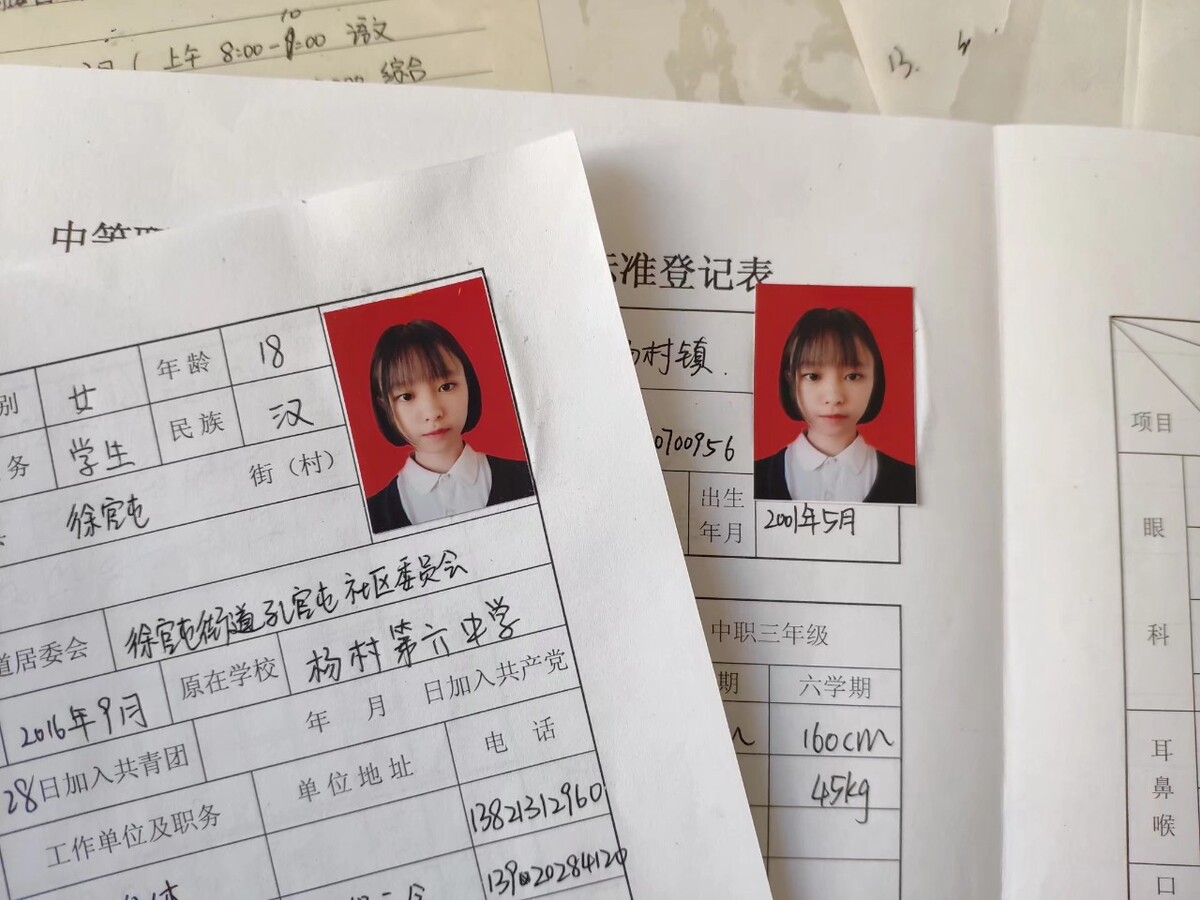 上午 8:00-9:00 语文
10
综合
13.
中等
标准登记表
别 女 年龄 18
务 学生 民族 汉
徐官屯 街（村）
徐官屯街道孔官屯社区委员会
道居委会
2016年9月 原在学校 杨村第六中学
年 月 日加入共产党
28日加入共青团
工作单位及职务 单位地址 电话
13821312960
13902028412
村镇.
0700956
出生年月 2001年5月
中职三年级
期 六学期
160cm
45kg
项目
眼
科
耳
鼻
喉
口